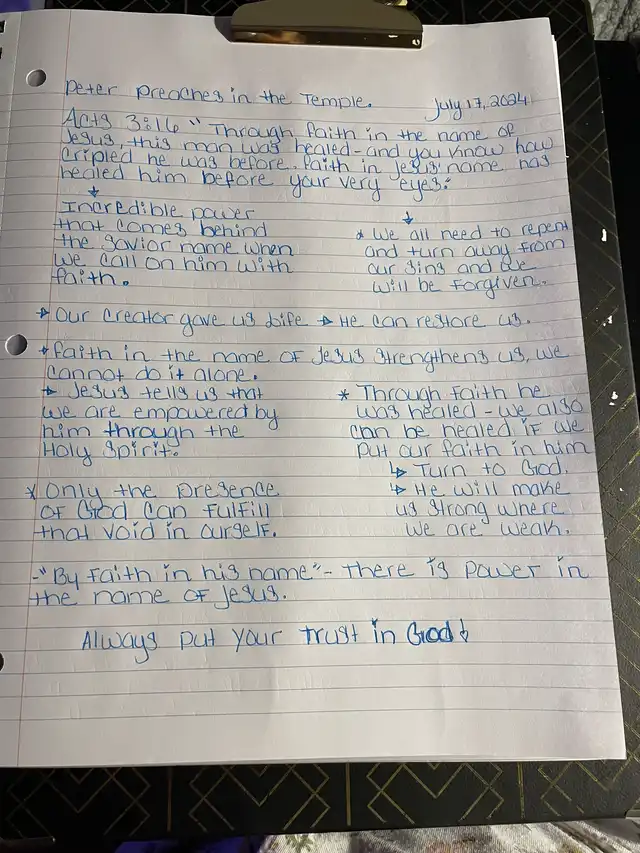 Peter Preaches in the Temple. July 17, 2024
Acts 3:16 "Through faith in the name of
Jesus, this man was healed - and you know how
cripled he was before. faith in Jesus' name has
healed him before your very eyes:
Incredible power
that comes behind
the savior name when
we call on him with
faith.
* We all need to repent
and turn away from
our sins and we
will be forgiven.
→ Our creator gave us life → He can restore us.
* faith in the name of Jesus strengthens us, we
cannot do it alone.
→ Jesus tells us that
we are empowered by
him through the
Holy Spirit.
* Through faith he
was healed - we also
can be healed if we
put our faith in him
↳ Turn to God.
↳ He will make
us strong where
we are weak.
* Only the presence
of God can fulfill
that void in ourself.
- "By faith in his name" - There is power in
the name of Jesus.
Always put your trust in God!